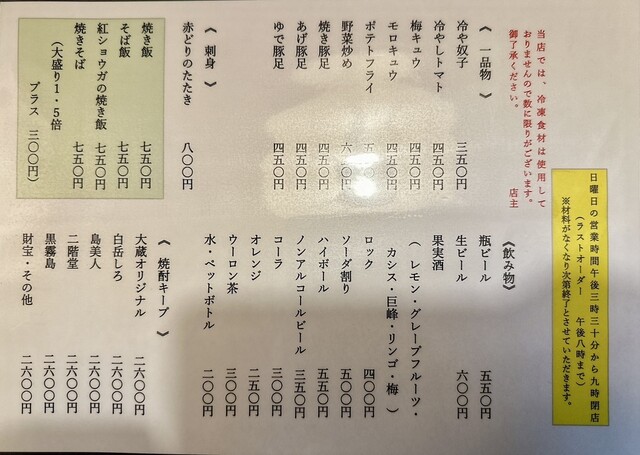 日曜日の営業時間午後三時三十分から九時閉店
（ラストオーダー　午後八時まで）
※材料がなくなり次第終了とさせていただきます。
当店では、冷凍食材は使用して
おりませんので数に限りがございます。
御了承ください。　店主
《 一品物 》
冷や奴　三五〇円
冷やしトマト　四五〇円
梅キュウ　四五〇円
モロキュウ　四五〇円
ポテトフライ
野菜炒め
焼き豚足　四五〇円
あげ豚足　四五〇円
ゆで豚足　四五〇円
《 刺身 》
赤どりのたたき　八〇〇円
焼き飯　七五〇円
そば飯　七五〇円
紅ショウガの焼き飯　七五〇円
焼きそば　七五〇円
（大盛り１・５倍
プラス　三〇〇円）
《飲み物》
瓶ビール　五五〇円
生ビール　六〇〇円
果実酒
（ レモン・グレープフルーツ・
カシス・巨峰・リンゴ・梅 ）
ロック　四〇〇円
ソーダ割り　五〇〇円
ハイボール　五〇〇円
ノンアルコールビール　三五〇円
コーラ　三〇〇円
オレンジ　二五〇円
ウーロン茶　三〇〇円
水・ペットボトル　二〇〇円
《 焼酎キープ 》
大蔵オリジナル　二六〇〇円
白岳しろ　二六〇〇円
島美人　二六〇〇円
二階堂　二六〇〇円
黒霧島　二六〇〇円
財宝・その他　二六〇〇円